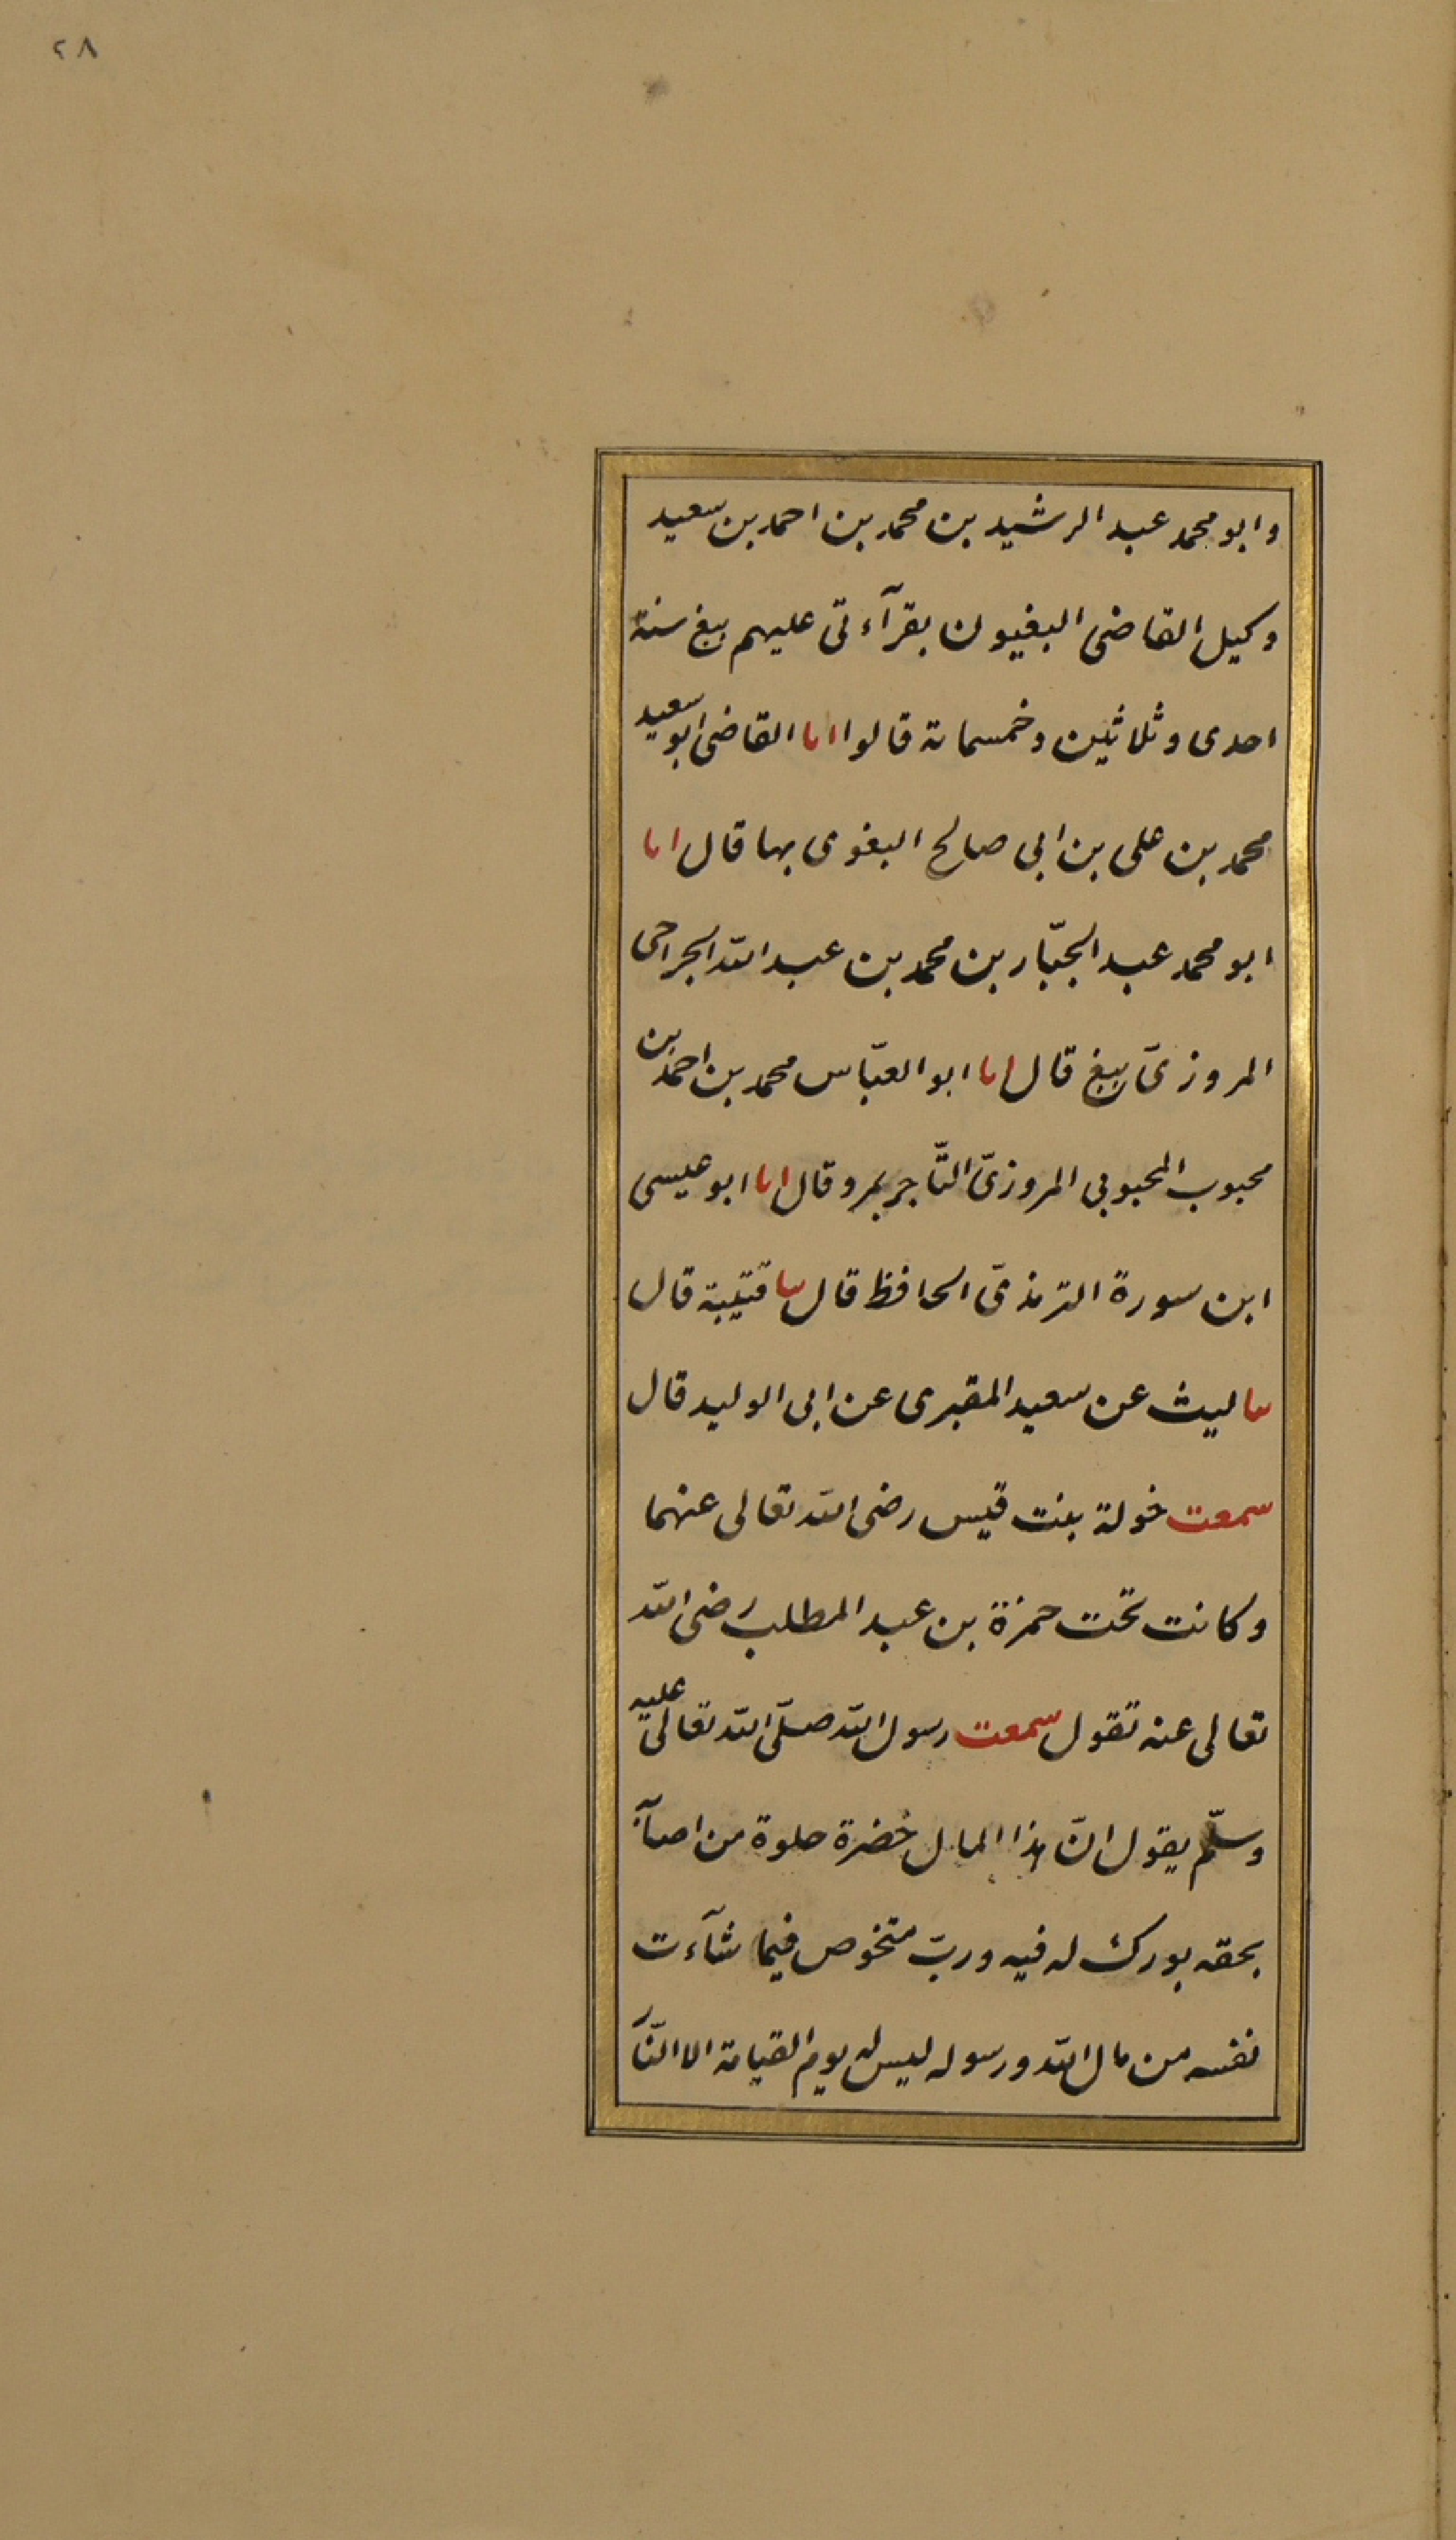 ٢٨
وابو محمد عبد الرشيد بن محمد بن احمد بن سعيد
وكيل القاضى البغيون بقرآءتى عليهم ببغ سنة
احدى وثلاثين وخمسماة قالوا انا القاضى ابو سعيد
محمد بن على بن ابى صالح البغوى بها قال انا
ابو محمد عبد الجبّار بن محمد بن عبد الله الجراحى
المروزىّ ببغ قال انا ابو العبّاس محمد بن احمد بن
محبوب المحبوبى المروزىّ التّاجر بمرو قال انا ابو عيسى
ابن سورة الترمذىّ الحافظ قال ںا قتيبة قال
ںا ليث عن سعيد المقبرى عن ابى الوليد قال
سمعت خولة بنت قيس رضى الله تعالى عنهما
وكانت تحت حمزة بن عبد المطلب رضى الله
تعالى عنه تقول سمعت رسول الله صلّى الله تعالى عليه
وسلّم يقول انّ هذا المال خضرة حلوة من اصابه
بحقه بورك له فيه وربّ متخوص فيما شآءت
نفسه من مال الله ورسوله ليس له يوم القيامة الا النّار